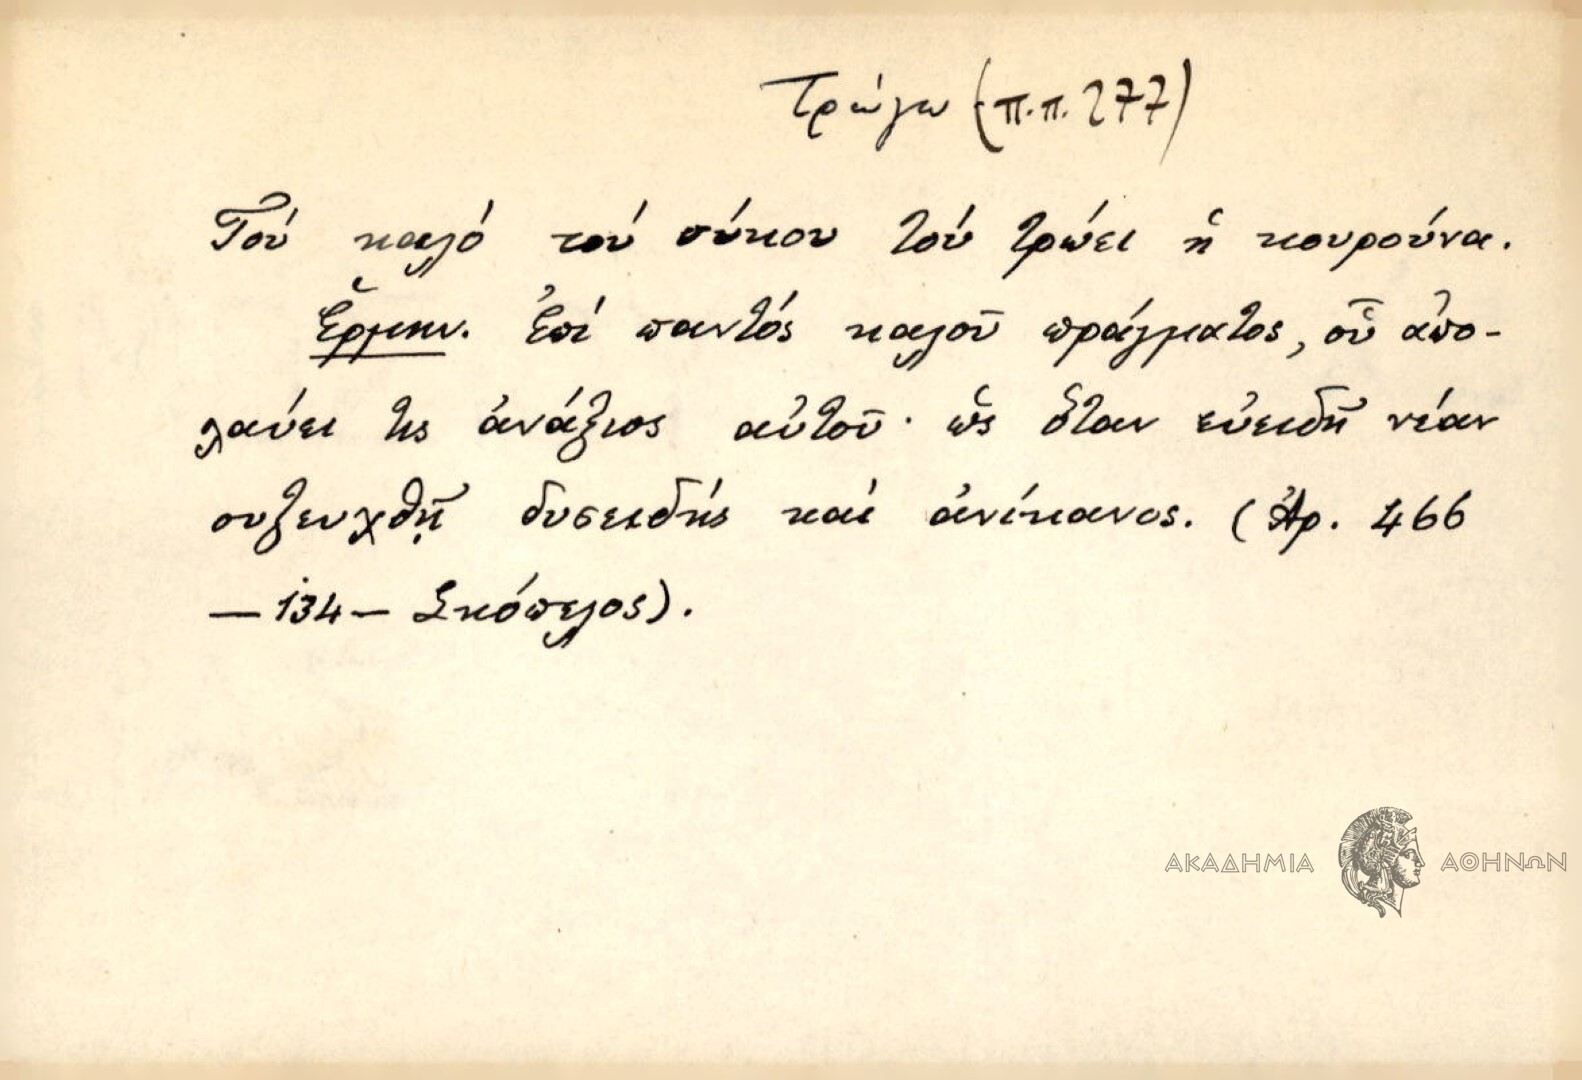 Τρώγω (π.π. 277)
Τού καλό τού σύκου τού τρώει ἡ κουρούνα.
Ἑρμην. Ἐπί παντός καλοῦ πράγματος, οὗ ἀπο-
λαύει τις ἀνάξιος αὐτοῦ· ὡς ὅταν εὐειδῆ νέαν
συζευχθῇ δυσειδής καί ἀνίκανος. (Ἀρ. 466
— 134 — Σκόπελος).
ΑΚΑΔΗΜΙΑ ΑΘΗΝΩΝ